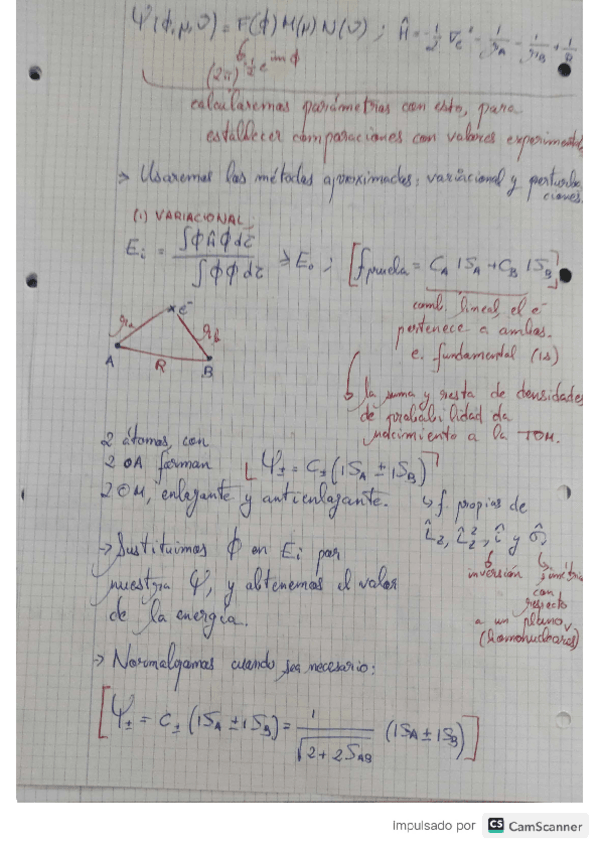 Ψ(φ,μ,ν) = F(φ) M(μ) N(ν) ; Ĥ = -1/2 ∇e² - 1/rA - 1/rB + 1/R
(2π)^-1/2 e^imφ
calcularemos parámetros con esto, para
establecer comparaciones con valores experimentales
> Usaremos los métodos aproximados: variacional y perturba
ciones.
(1) VARIACIONAL:
Ei = ∫ΦĤΦdτ / ∫ΦΦdτ ≥ E₀ ; [fprueba = CA 1SA + CB 1SB]
comb. lineal, el e⁻
pertenece a ambas.
e. fundamental (1s)
x e⁻
ra rb
A R B
la suma y resta de densidades
de probabilidad da
nacimiento a la TOM.
2 átomos, con
2 OA forman [Ψ± = C± (1SA ± 1SB)]
2 OM, enlazante y antienlazante.
↳ f. propias de
L̂z, L̂z², î y σ̂v
inversión simetría
con
respecto
a un plano
(homonucleares)
→ Sustituimos Φ en Ei por
nuestra Ψ, y obtenemos el valor
de la energía.
→ Normalizamos cuando sea necesario:
[Ψ± = C± (1SA ± 1SB) = 1/√(2+2SAB) (1SA ± 1SB)]
Impulsado por CS CamScanner